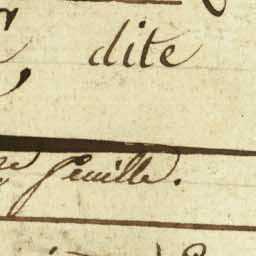 , dite
feuille.